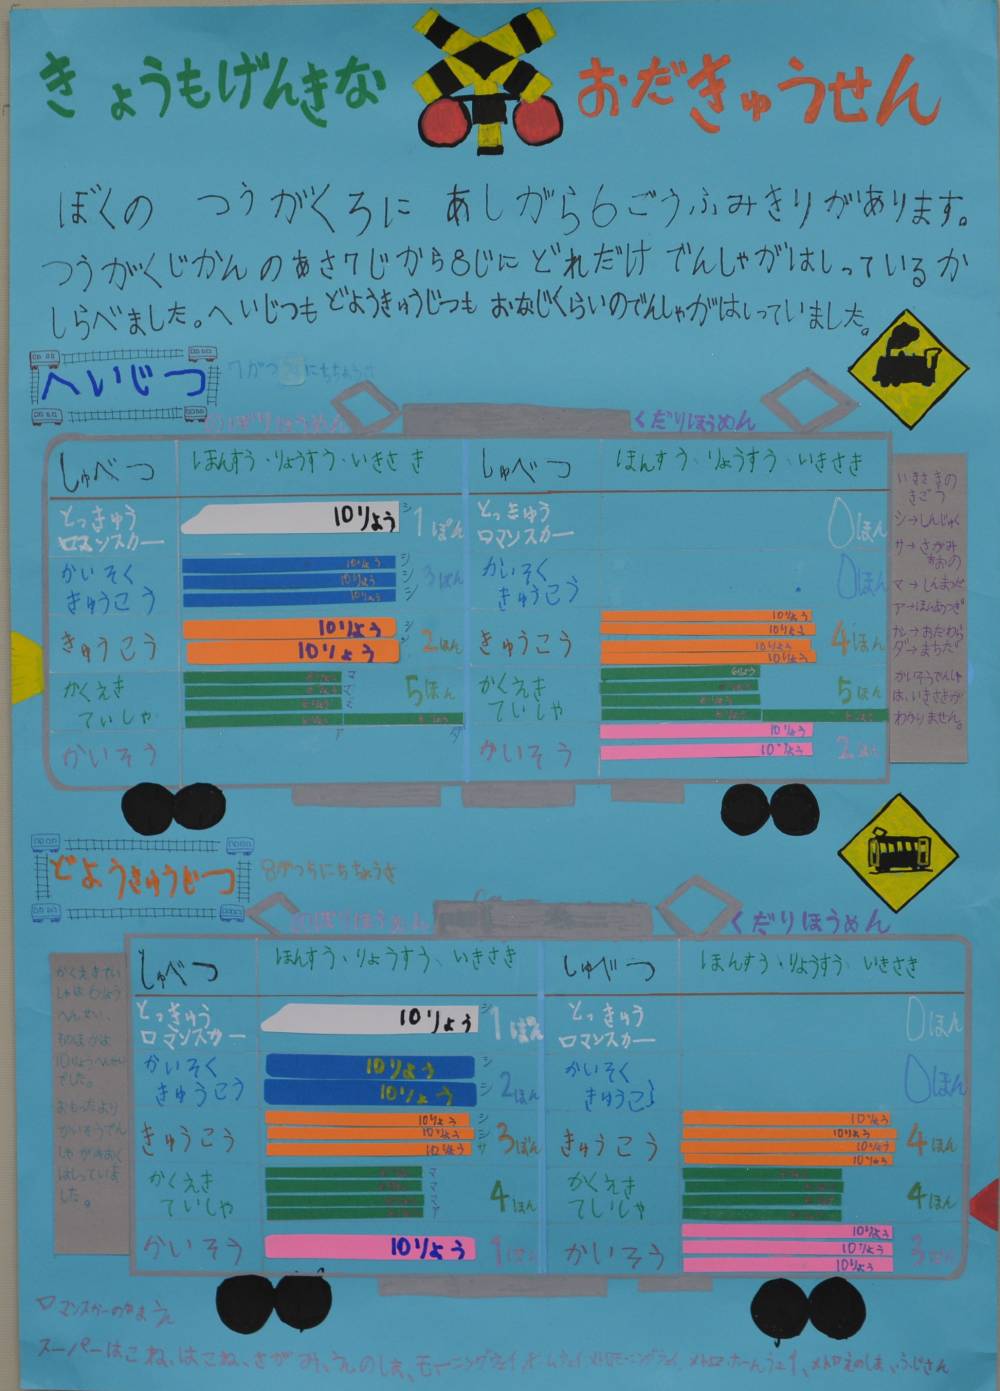 きょうもげんきな おだきゅうせん
ぼくの つうがくろに あしがら6ごうふみきりがあります。
つうがくじかんのあさ7じから8じに どれだけ でんしゃがはしっているか
しらべました。へいじつも どようきゅうじつも おなじくらいのでんしゃがはしっていました。
へいじつ
7がつ にちちょうさ
のぼりほうめん くだりほうめん
しゅべつ ほんすう・りょうすう・いきさき しゅべつ ほんすう・りょうすう・いきさき
とっきゅう ロマンスカー 10りょう シ 1ぽん とっきゅう ロマンスカー 0ほん
かいそく きゅうこう 10りょう シ 10りょう シ 10りょう シ 3ぼん かいそく きゅうこう 0ほん
きゅうこう 10りょう シ 10りょう シ 2ほん きゅうこう 10りょう 10りょう 10りょう 10りょう 4ほん
かくえき ていしゃ マ マ 5ほん ア ダ かくえき ていしゃ 6りょう 5ほん
かいそう かいそう 10りょう 10りょう 2ほん
いきさきの
きごう
シ→しんじゅく
サ→さがみ
おおの
マ→しんまつだ
ア→ほんあつぎ
オ→おだわら
ダ→まちだ
かいそうでんしゃ
は、いきさきが
わかりません。
どようきゅうじつ
8がつ にちちょうさ
のぼりほうめん くだりほうめん
しゅべつ ほんすう・りょうすう・いきさき しゅべつ ほんすう・りょうすう・いきさき
とっきゅう ロマンスカー 10りょう シ 1ぽん とっきゅう ロマンスカー 0ほん
かいそく きゅうこう 10りょう シ 10りょう シ 2ほん かいそく きゅうこう 0ほん
きゅうこう 10りょう シ 10りょう シ 10りょう サ 3ぼん きゅうこう 10りょう 10りょう 10りょう 10りょう 4ほん
かくえき ていしゃ マ マ マ ア 4ほん かくえき ていしゃ 4ほん
かいそう 10りょう 1ぽん かいそう 10りょう 10りょう 10りょう 3ぼん
かくえきてい
しゃは6りょう
へんせい、
そのほかは
10りょうへんせい
でした。
おもったより
かいそうでん
しゃがおおく
はしっていま
した。
ロマンスカーのなまえ
スーパーはこね、はこね、さがみ、えのしま、モーニングウェイ、ホームウェイ、メトロモーニングウェイ、メトロホームウェイ、メトロえのしま、ふじさん